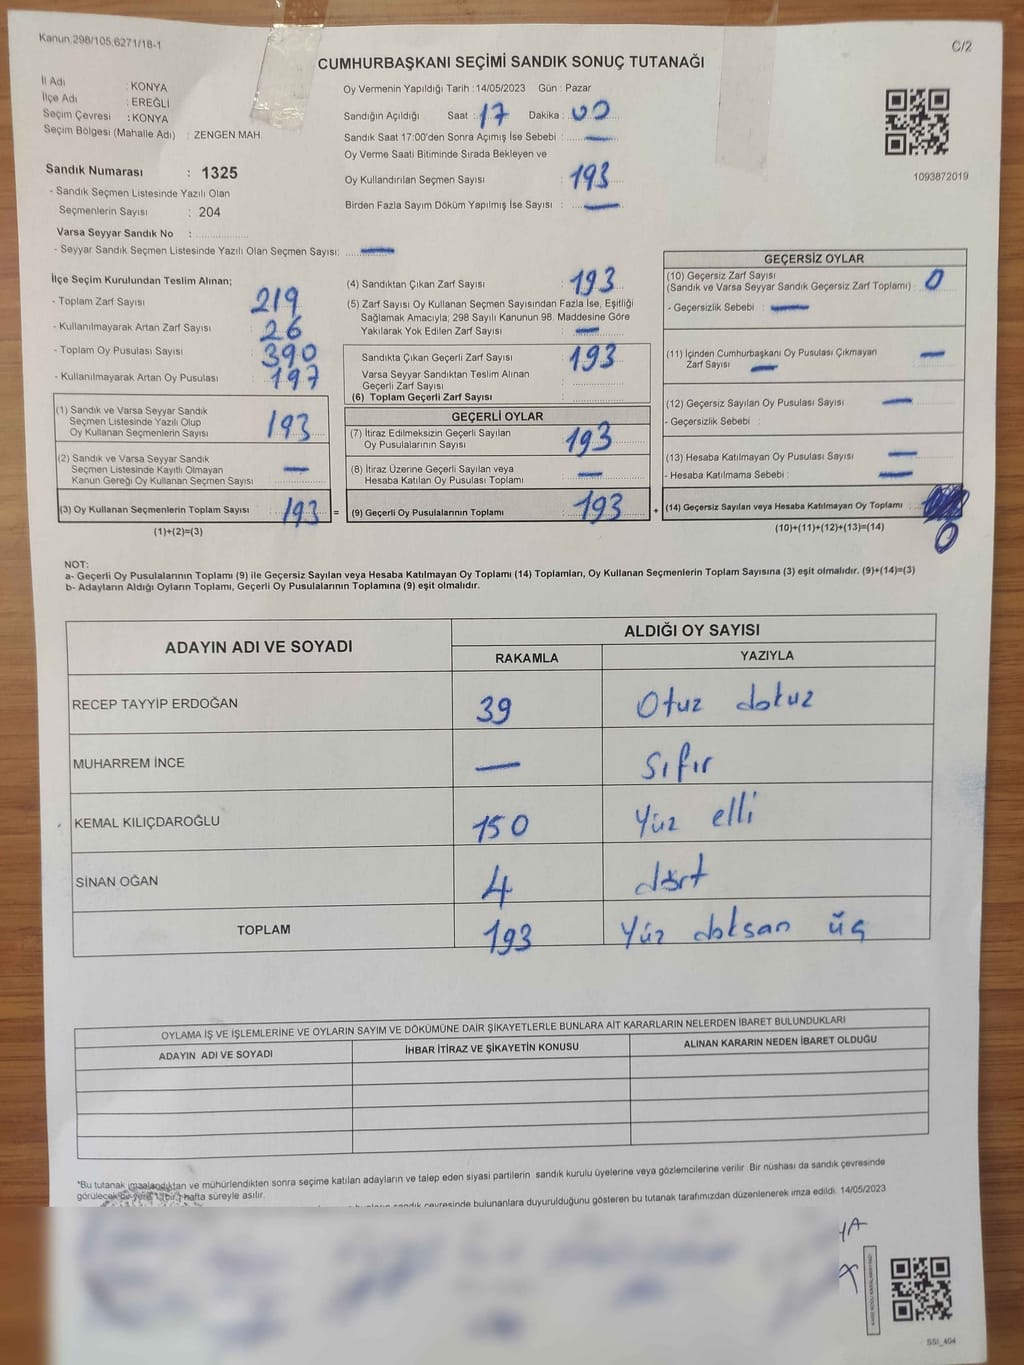 Kanun:298/105;6271/18-1
C/2
CUMHURBAŞKANI SEÇİMİ SANDIK SONUÇ TUTANAĞI
İl Adı : KONYA
İlçe Adı : EREĞLİ
Seçim Çevresi : KONYA
Seçim Bölgesi (Mahalle Adı) : ZENGEN MAH.
Sandık Numarası : 1325
- Sandık Seçmen Listesinde Yazılı Olan
Seçmenlerin Sayısı : 204
Varsa Seyyar Sandık No :
- Seyyar Sandık Seçmen Listesinde Yazılı Olan Seçmen Sayısı: —
Oy Vermenin Yapıldığı Tarih : 14/05/2023 Gün : Pazar
Sandığın Açıldığı Saat : 17 Dakika : 00
Sandık Saat 17:00'den Sonra Açımış İse Sebebi : —
Oy Verme Saati Bitiminde Sırada Bekleyen ve
Oy Kullandırılan Seçmen Sayısı : 193
Birden Fazla Sayım Döküm Yapılmış İse Sayısı : —
1093872019
İlçe Seçim Kurulundan Teslim Alınan;
- Toplam Zarf Sayısı : 219
- Kullanılmayarak Artan Zarf Sayısı : 26
- Toplam Oy Pusulası Sayısı : 390
- Kullanılmayarak Artan Oy Pusulası : 197
(1) Sandık ve Varsa Seyyar Sandık
Seçmen Listesinde Yazılı Olup
Oy Kullanan Seçmenlerin Sayısı : 193
(2) Sandık ve Varsa Seyyar Sandık
Seçmen Listesinde Kayıtlı Olmayan
Kanun Gereği Oy Kullanan Seçmen Sayısı : —
(3) Oy Kullanan Seçmenlerin Toplam Sayısı : 193 =
(1)+(2)=(3)
(4) Sandıktan Çıkan Zarf Sayısı : 193
(5) Zarf Sayısı Oy Kullanan Seçmen Sayısından Fazla İse, Eşitliği
Sağlamak Amacıyla; 298 Sayılı Kanunun 98. Maddesine Göre
Yakılarak Yok Edilen Zarf Sayısı : —
Sandıkta Çıkan Geçerli Zarf Sayısı : 193
Varsa Seyyar Sandıktan Teslim Alınan
Geçerli Zarf Sayısı :
(6) Toplam Geçerli Zarf Sayısı :
GEÇERLİ OYLAR
(7) İtiraz Edilmeksizin Geçerli Sayılan
Oy Pusulalarının Sayısı : 193
(8) İtiraz Üzerine Geçerli Sayılan veya
Hesaba Katılan Oy Pusulası Toplamı : —
(9) Geçerli Oy Pusulalarının Toplamı : 193 +
GEÇERSİZ OYLAR
(10) Geçersiz Zarf Sayısı
(Sandık ve Varsa Seyyar Sandık Geçersiz Zarf Toplamı) : 0
- Geçersizlik Sebebi : —
(11) İçinden Cumhurbaşkanı Oy Pusulası Çıkmayan
Zarf Sayısı : — —
(12) Geçersiz Sayılan Oy Pusulası Sayısı : —
- Geçersizlik Sebebi :
(13) Hesaba Katılmayan Oy Pusulası Sayısı : —
- Hesaba Katılmama Sebebi : —
(14) Geçersiz Sayılan veya Hesaba Katılmayan Oy Toplamı : 0
(10)+(11)+(12)+(13)=(14)
NOT:
a- Geçerli Oy Pusulalarının Toplamı (9) ile Geçersiz Sayılan veya Hesaba Katılmayan Oy Toplamı (14) Toplamları, Oy Kullanan Seçmenlerin Toplam Sayısına (3) eşit olmalıdır. (9)+(14)=(3)
b- Adayların Aldığı Oyların Toplamı, Geçerli Oy Pusulalarının Toplamına (9) eşit olmalıdır.
ADAYIN ADI VE SOYADI ALDIĞI OY SAYISI
RAKAMLA YAZIYLA
RECEP TAYYİP ERDOĞAN 39 Otuz dokuz
MUHARREM İNCE — Sıfır
KEMAL KILIÇDAROĞLU 150 Yüz elli
SİNAN OĞAN 4 dört
TOPLAM 193 Yüz doksan üç
OYLAMA İŞ VE İŞLEMLERİNE VE OYLARIN SAYIM VE DÖKÜMÜNE DAİR ŞİKAYETLERLE BUNLARA AİT KARARLARIN NELERDEN İBARET BULUNDUKLARI
ADAYIN ADI VE SOYADI İHBAR İTİRAZ VE ŞİKAYETİN KONUSU ALINAN KARARIN NEDEN İBARET OLDUĞU
*Bu tutanak imzalandıktan ve mühürlendikten sonra seçime katılan adayların ve talep eden siyasi partilerin sandık kurulu üyelerine veya gözlemcilerine verilir. Bir nüshası da sandık çevresinde
görülecek bir yere 1 (bir) hafta süreyle asılır.
sandık çevresinde bulunanlara duyurulduğunu gösteren bu tutanak tarafımızdan düzenlenerek imza edildi. 14/05/2023
SSI_404